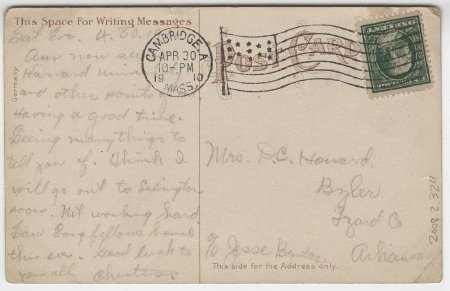 This Space For Writing Messages
Sat Eve. 4.30.
Am now seeing
Harvard
and other points.
Having a good time.
Seeing many things to
tell you of. Think I
will go out to
soon. Not working hard
fellows some
this eve. Good luck to
you all Chester
Germany
CAMBRIDGE A
APR 30
10-PM
19 10
MASS.
POST CARD
Mrs. D.C. Howard.
Byler
Izard Co
c/o Jesse Arkansas
This side for the Address only.
2008.2.324